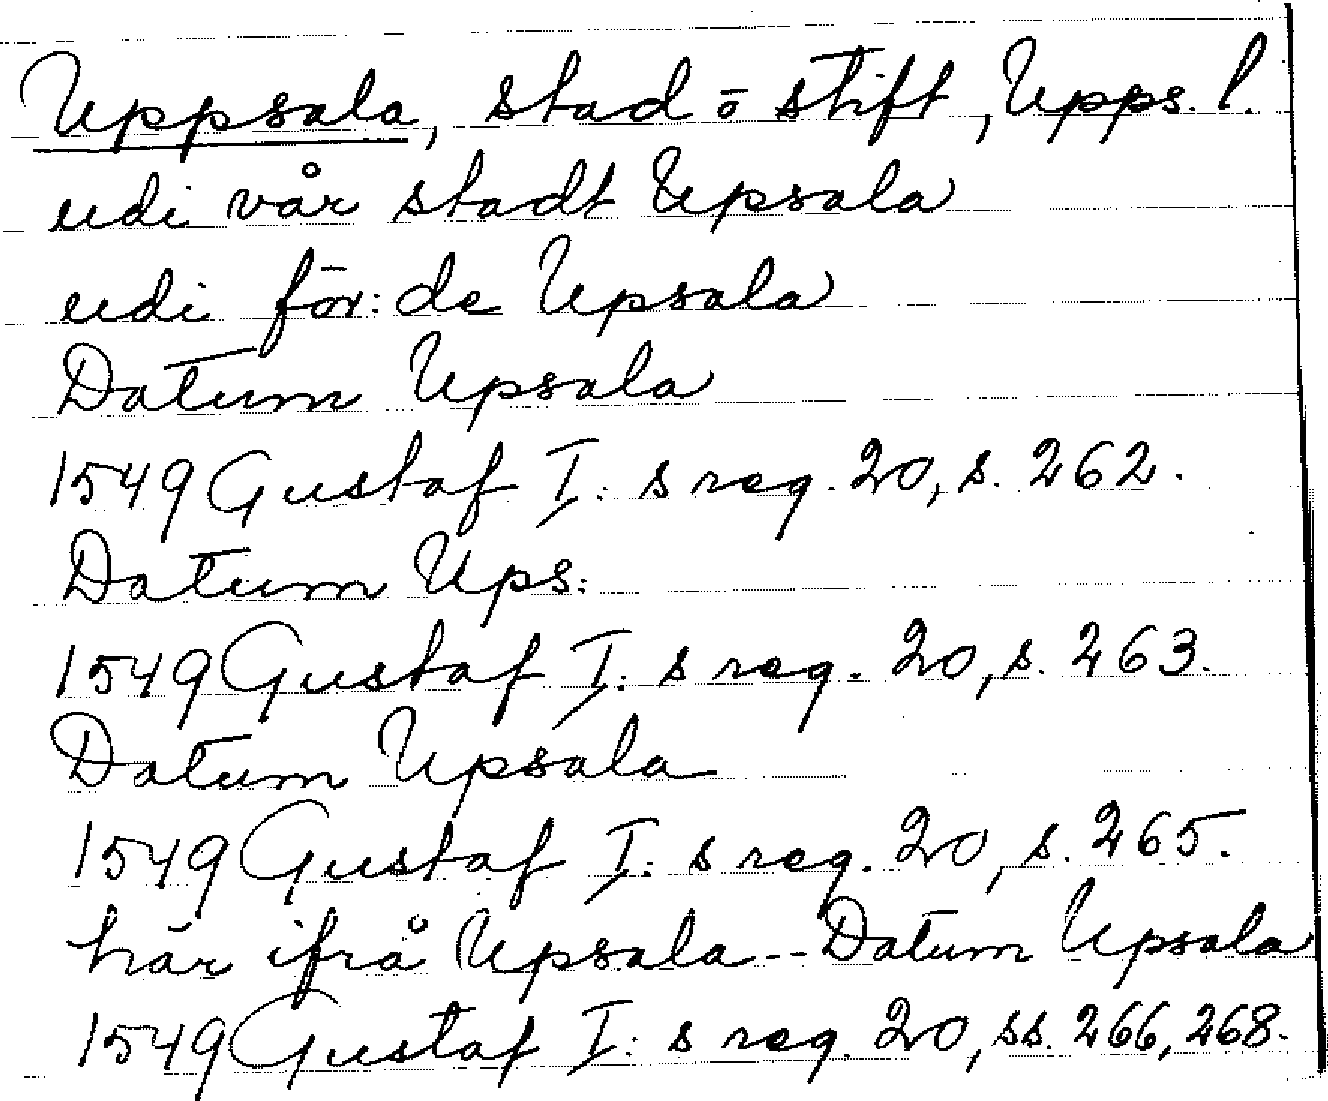 Uppsala, stad ō stift, Upps. l.
udi vår stadt Upsala
udi för: de Upsala
Datum Upsala
1549 Gustaf I: s reg. 20, s. 262.
Datum Ups:
1549 Gustaf I: s reg. 20, s. 263.
Datum Upsala
1549 Gustaf I: s reg. 20, s. 265.
här ifrå Upsala -- Datum Upsala
1549 Gustaf I: s reg. 20, ss. 266, 268.